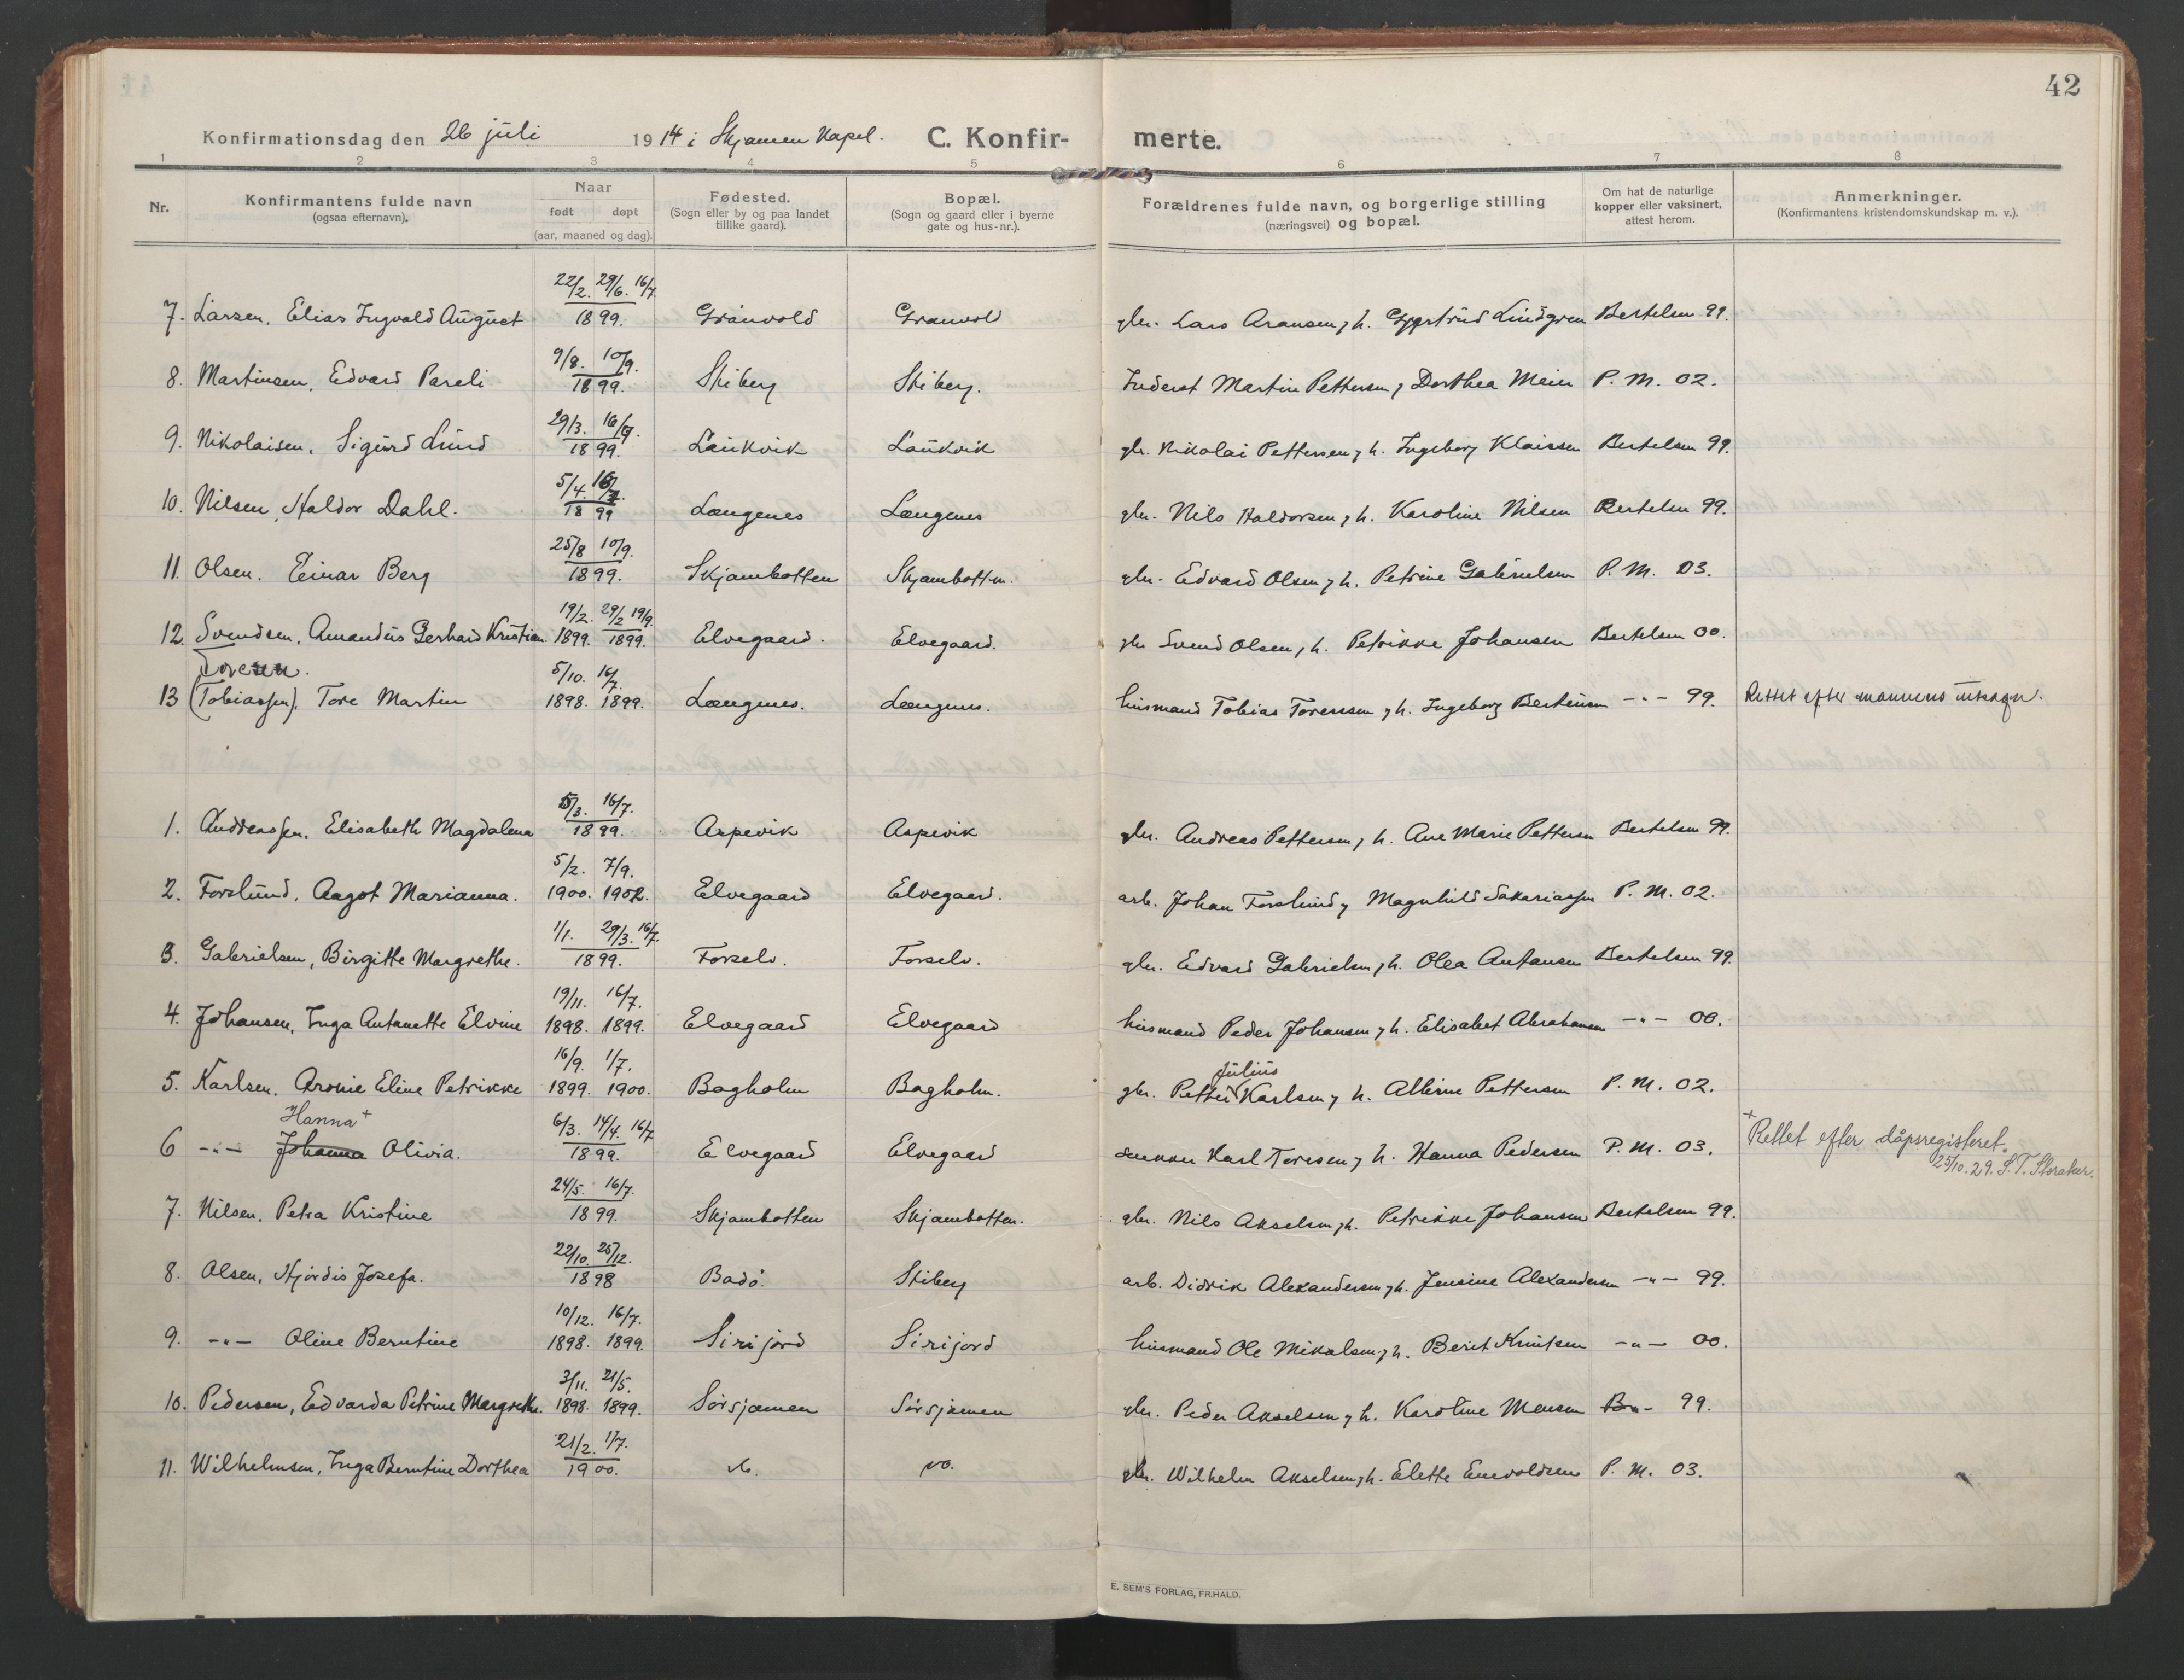 42
Konfirmationsdag den 26 juli 1914 i Skjomen Kapel. C. Konfirmerte.
1 2 3 4 5 6 7 8
Nr. Konfirmantens fulde navn (ogsaa efternavn). Naar født døpt (aar, maaned og dag). Fødested. (Sogn eller by og paa landet tillike gaard). Bopæl. (Sogn og gaard eller i byerne gate og hus-nr.). Forældrenes fulde navn, og borgerlige stilling (næringsvei) og bopæl. Om hat de naturlige kopper eller vaksinert, attest herom. Anmerkninger. (Konfirmantens kristendomskundskap m. v.).
22/2. 29/6. 16/7
7. Larsen. Elias Ingvald August 1899. Graavold Graavold gbr. Lars Aronsen, h. Lindgren Bertelsen 99.
9/8. 10/9.
8. Martinsen. Edvard Pareli 1899. Stiberg Stiberg. Inderst Martin Pettersen, Dorthea Meier P. M. 02.
29/3. 16/7.
9. Nikolaisen. Sigurd Lund 1899. Laukvik Laukvik gbr. Nikolai Pettersen, h. Ingeborg Klaissen Bertelsen 99.
5/4. 16/7.
10. Nilsen, Haldor Dahl. 1899 Længenes Længenes gbr. Nils Haldorsen, h. Karoline Nilsen Bertelsen 99.
25/8 10/9.
11. Olsen. Einar Berg 1899. Skjombotten Skjombotten. gbr. Edvard Olsen, h. Petrine Gabrielsen P. M. 03.
19/2. 29/2 19/9.
12. Svendsen. Amandus Gerhard Kristian. 1899. 1899. Elvegaard. Elvegaard. gbr Svend Olsen, h. Petrikke Johansen Bertelsen 00.
Toresen. 5/10. 16/7.
13 (Tobiassen). Tore Martin 1898. 1899. Længenes. Længenes. husmand Tobias Toressen, h. Ingeborg Berteussen -"- 99. Rettet efter mannens utsagn.
5/3. 16/7.
1. Andreassen. Elisabeth Magdalena 1899. Aspevik Aspevik gbr. Andreas Pettersen, h. Ane Marie Pettersen Bertelsen 99.
5/2. 7/9.
2. Forslund. Aagot Marianna. 1900. 1902. Elvegaard Elvegaard. arb. Johan Forslund, Magnhild Sakariassen P. M. 02.
1/1. 29/3. 16/7.
3. Gabrielsen, Birgitte Margrethe. 1899. Forselv. Forselv. gbr. Edvard Gabrielsen, h. Olea Antonsen Bertelsen 99.
19/11. 16/7.
4. Johansen, Inga Antonette Elvine 1898. 1899. Elvegaard Elvegaard husmand Peder Johansen, h. Elisabet Abrahamsen -"- 00.
16/9. 1/7. Julius
5. Karlsen. Aronie Eline Petrikke 1899. 1900. Bagholm Bagholm. gbr. Petter Karlsen, h. Albine Pettersen P. M. 02.
Hanna+ 6/3. 14/4. 16/7
6 -"- Johanna Olivia. 1899. Elvegaard Elvegaard Karl Toresen, h. Hanna Pedersen P. M. 03. +Rettet efter dåpsregisteret.
25/10.29. S. T. Storaker.
24/5. 16/7.
7. Nilsen. Petra Kristine 1899. Skjombotten Skjombotten. gbr. Nils Akselsen, h. Petrikke Johansen Bertelsen 99.
22/10. 25/12.
8. Olsen, Hjördis Josefa. 1898 Bodö. Stiberg arb. Didrik Alexandersen, h. Jensine Alexandersen -"- 99.
10/12. 16/7.
9. -"- Oline Berntine 1898. 1899. Sirijord Sirijord husmand Ole Mikalsen, h. Berit Knutsen -"- 00.
3/11. 21/5.
10. Pedersen, Edvarda Petrine Margrethe. 1898. 1899. Sörsjomen Sörsjomen gbr. Peder Akselsen, h. Karoline Monsen -"- 99.
21/2. 1/7.
11. Wilhelmsen, Inga Berntine Dorthea 1900. gbr. Wilhelm Akselsen, h. Elette Enevoldsen P. M. 03.
E. SEM'S FORLAG, FR.HALD.